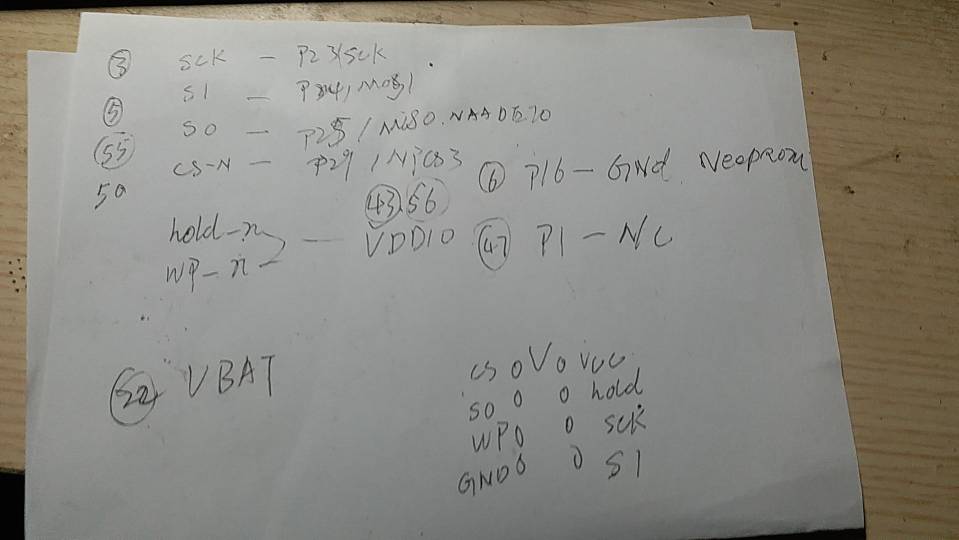 ③ SCK — P23/SCK
⑤ SI — P24/MOSI
55 SO — P25/MISO.NAADET0
50 CS-N — P29/NPCS3
⑥ P16 — GND Neoprom
43.56
hold-n
WP-n — VDDIO
47 P1 — NC
52 VBAT
CS 0 V 0 VCC
SO 0 0 hold
WP 0 0 SCK
GND 0 0 SI